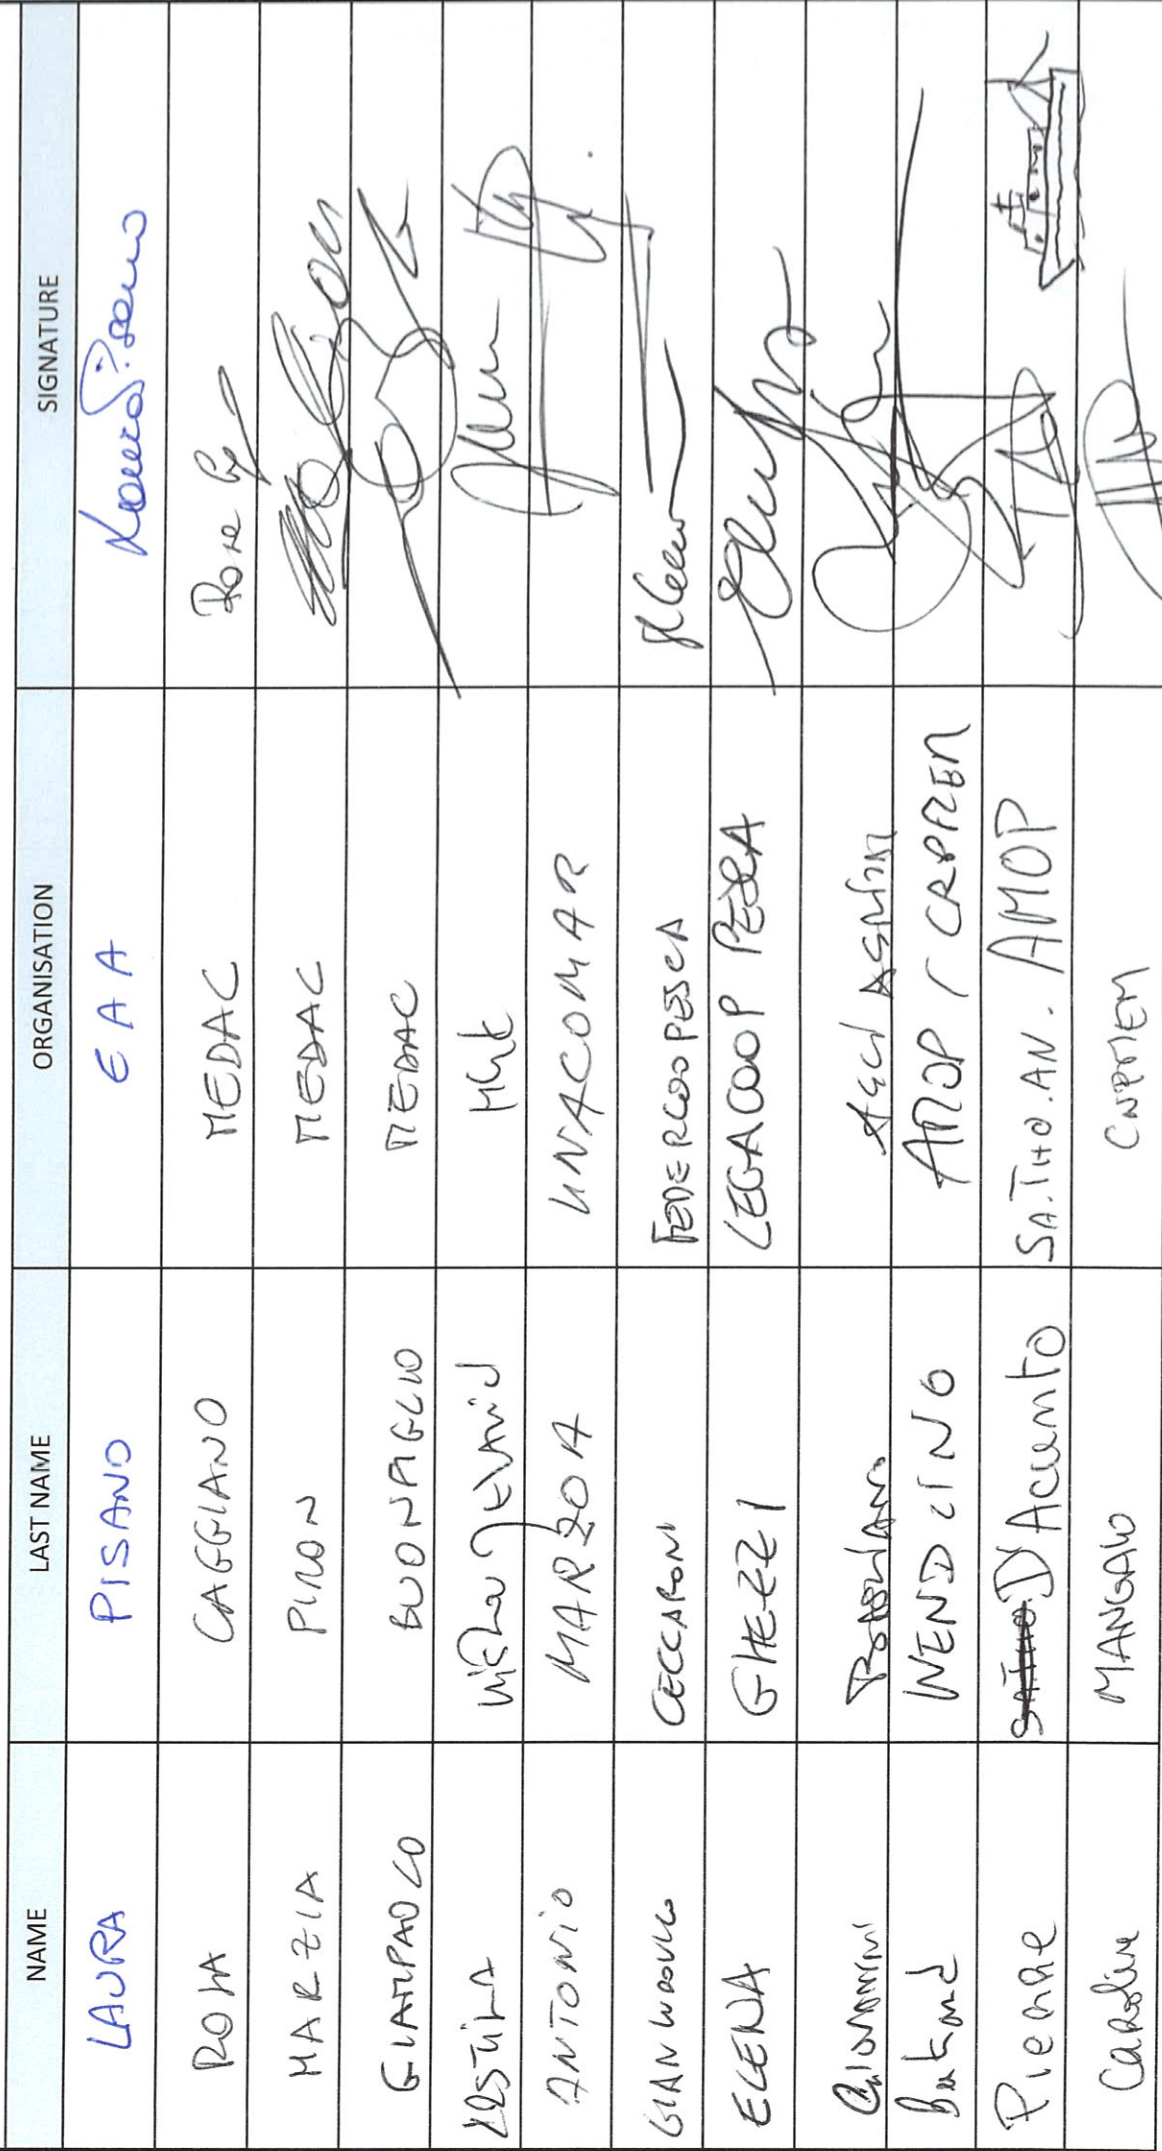 NAME LAST NAME ORGANISATION SIGNATURE
LAURA PISANO E A A Laura Pisano
ROSA CAGGIANO MEDAC Rosa
MARZIA PIÑON MEDAC
GIAMPAOLO BUONFIGLIO MEDAC
ANTONIO MARZOA UNACOMAR
GIANLUDOVICO CECCARONI FEDERCOOPESCA
ELENA GHEZZI LEGACOOP PESCA
AGCI AGRITAL
Bertrand WENDLING AMOP / CRPMEM
Pierre D'Acunto SA.THO.AN. AMOP
Caroline MANGALO CNPMEM